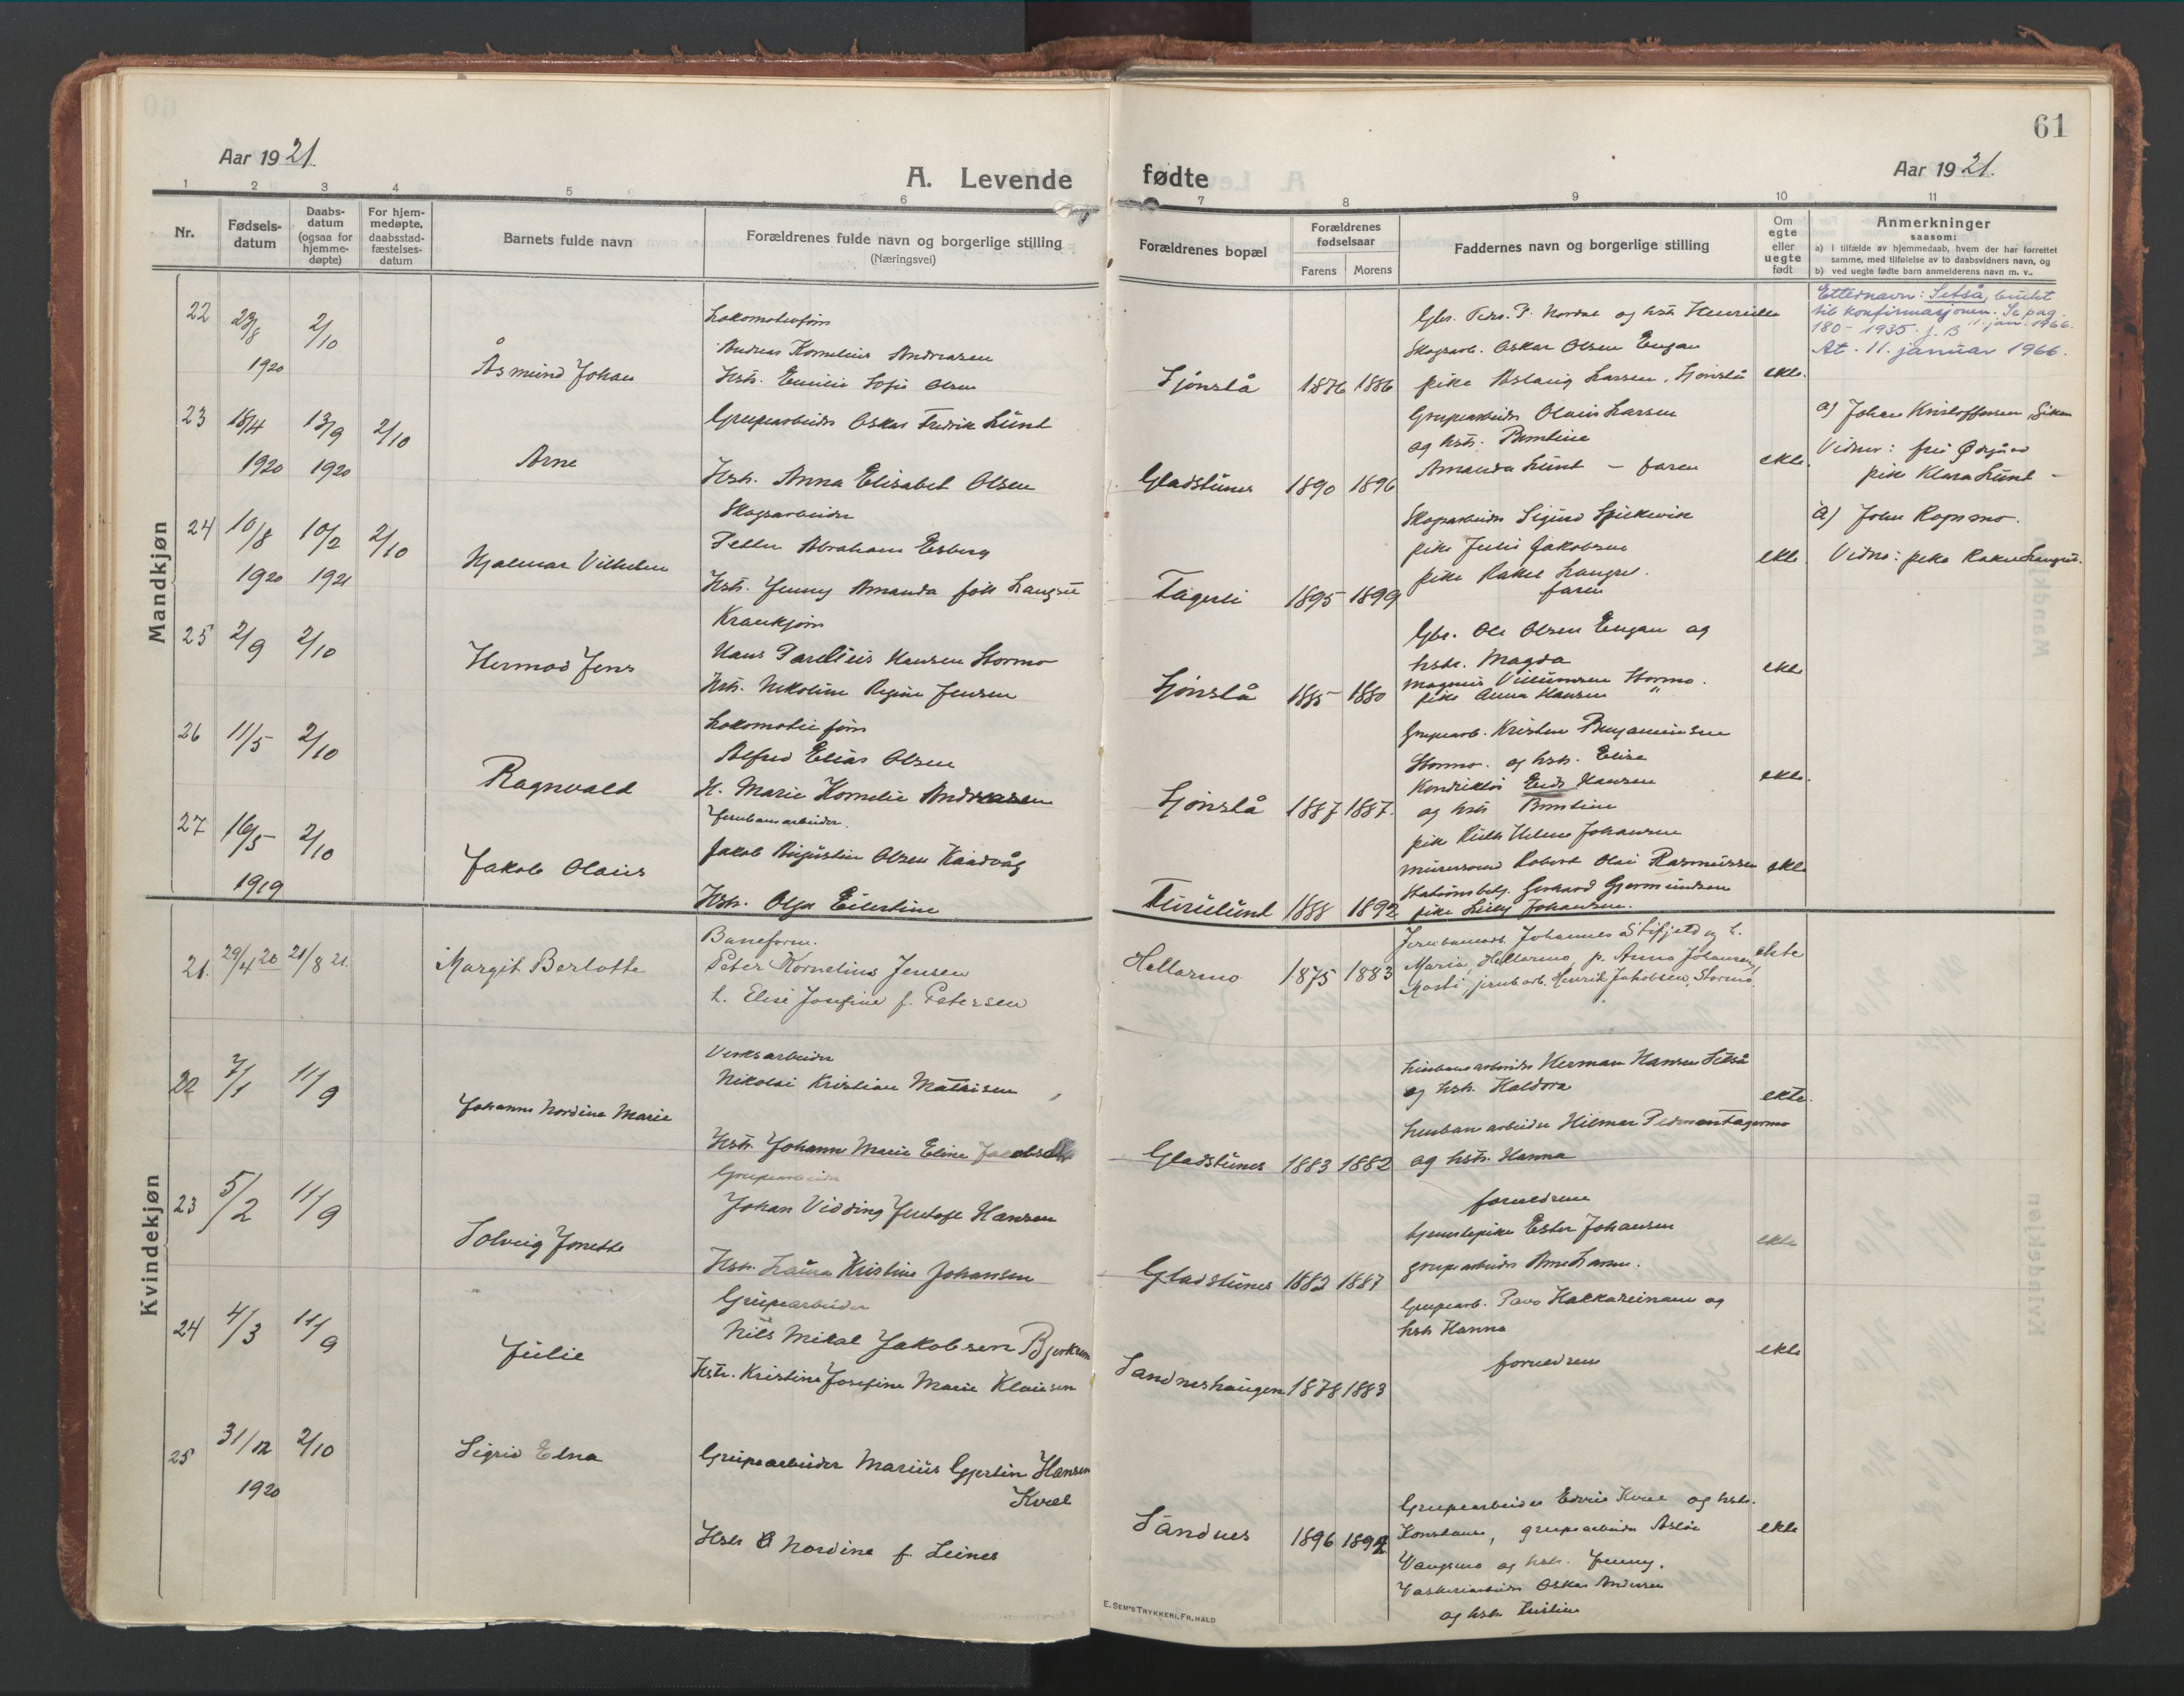 Aar 1921.
A. Levende
1 2 3 4 5 6
Nr.
Fødsels-datum
Daabs-datum (ogsaa for hjemme-døpte)
For hjem-medøpte, daabsstad-fæstelses-datum
Barnets fulde navn
Forældrenes fulde navn og borgerlige stilling
(Næringsvei)
Mandkjøn
22 23/8 1920 2/10
Åsmund Johan
Lokomotivfører
Andreas Kornelius Andreasen
Hstr. Emilie Sofie Olsen
23 18/4 1920 13/9 1920 2/10
Arne
Grupearbeider Oskar Fredrik Lund
Hstr. Anna Elisabet Olsen
24 10/8 1920 10/2 1921 2/10
Hjalmar Vilhelm
Skogsarbeider
Petter Abraham Esberg
Hstr. Jenny Amanda født
25 2/9 2/10
Hermod Jens
Hans Hansen Stormo
Hstr. Nikoline Regine Jensen
26 11/5 2/10
Ragnvald
Lokomotivfører
Alfred Elias Olsen
H. Marie Kornelie Andreasen
27 16/5 1919 2/10
Jakob Olaus
Jernbanearbeider.
Jakob Augustin Olsen
Hstr. Olga Eilertine
Kvindekjøn
21. 29/4 20 21/8 21.
Margit Berlotte
Baneform.
Peter Kornelius Jensen
h. Elise Josefine f. Petersen
22 7/1 11/9
Johanne Nordine Marie
Verksarbeider
Nikolai Kristian Mathisen
Hstr. Johann Marie Eline Jacobsen
23 5/2 11/9
Solveig Jonette
Grupearbeider
Johan Vidding Hansen
Hstr. Laura Kristine Johansen
24 4/3 11/9
Julie
Grupearbeider
Nils Mikal Jakobsen
Hstr. Kristine Josefine Marie
25 31/12 1920 2/10
Sigrid Elna
Grupearbeider Marius Gjertin Hansen
Kvæl
Hstr Nordine f. Leines
fødte
61
Aar 1921.
7 8 9 10 11
Forældrenes bopæl
Forældrenes fødselsaar
Farens Morens
Faddernes navn og borgerlige stilling
Om egte eller uegte født
Anmerkninger
saasom:
a) i tilfælde av hjemmedaab, hvem der har forrettet samme, med tilføielse av to daabsvidners navn, og
b) ved uegte fødte barn anmelderens navn m. v..
Sjønstå 1876 1886
Gbr. Peder P. Nordal og hstr Henrikke
Skogsarb. Oskar Olsen Engan
pike Aslaug Larsen, Sjønstå
ekte.
Etternavn: Setså, brukt
til konfirmasjonen. Se pag.
180 - 1935. 11. jan. 1966.
At. 11. januar 1966.
Gladstunes 1890 1896
Grupearbeider Olaus Larsen
og hstr. Berntine
Amanda Lund - faren
ekte.
a) Johan Kristoffersen
Vidner: fru
pike Klara Lund -
Fagerli 1895 1899
Skogsarbeider Sigurd
pike Julie Jakobsen
pike Rakel
faren
ekte.
a) John Rognmo.
Vidner: pike Rakel
Sjønstå 1885 1880
Gbr. Ole Olsen Engan og
hstr. Magda
Magnus Villumsen Stormo.
pike Anna Hansen "
ekte
Sjønstå 1887 1887.
Grupearb. Kristen Benjaminsen
Stormo. og hstr. Elise
Hansen
og hstr Berntine
ekte.
Furulund 1888 1892
pike Helene Johansen
Robert Olai Rasmussen
Stationsbetj. Gerhard Gjermundsen
pike Johansen.
ekte
Hellarmo 1875 1883
Jernbanearb. Johannes Stifjeld og h.
Maria, Hellarmo, p. Anna Johansen,
jernb.arb. Henrik Jakobsen, Stormo.
ekte
Gladstunes 1883 1882
Herman Hansen Setså
og hstr. Haldora
Hilmar
og hstr. Hanna
ekte.
Gladstunes 1882 1887
forældrene
tjenestepike Ester Johansen
grupearbeider Arne Larsen.
ekte
Sandneshaugen 1878 1883
Grupearb. og
hstr Hanna
forældrene
ekte
Sandnes 1896 1892
Grupearbeider Kvæl og hstr.
Konstanse, grupearbeider
Vangsmo og hstr. Jenny.
Vaskeriarbeider Oskar Andersen
og hstr Kristine
ekte
E. SEM'S TRYKKERI, FR. HALD